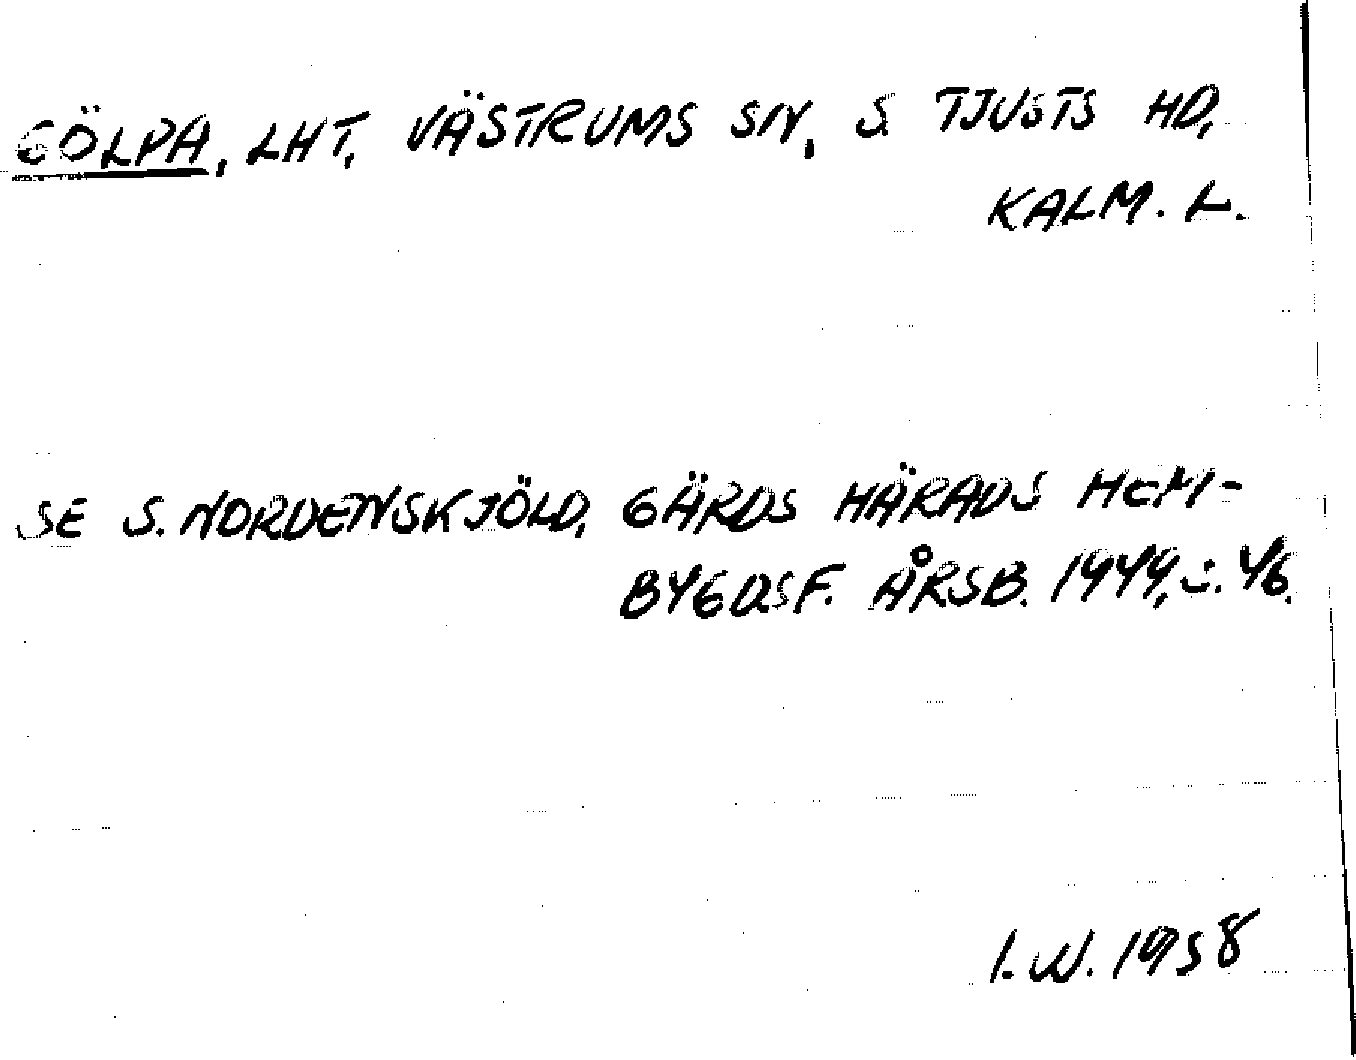 GÖLPA, LHT, VÄSTRUMS SN, S. TJUSTS HD,
KALM. L.
SE S. NORDENSKJÖLD, GÄRDS HÄRADS HEM-
BYGDSF. ÅRSB. 1944, S. 46.
I. W. 1958